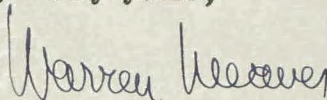 Warren Weaver